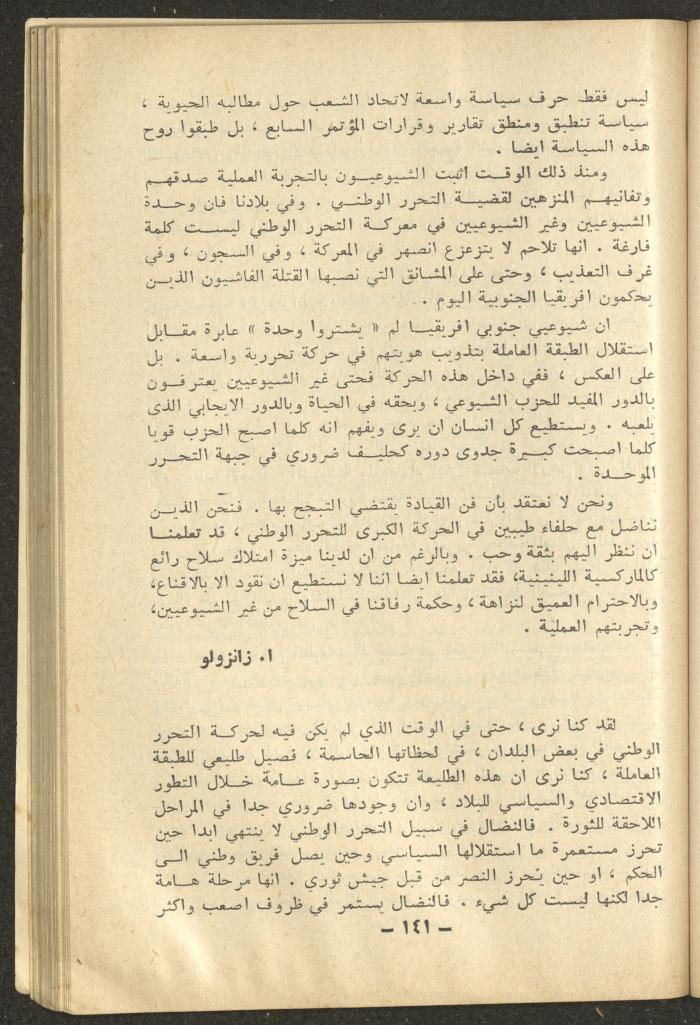 ليس فقط حرف سياسة واسعة لاتحاد الشعب حول مطالبه الحيوية ،
سياسة تنطبق ومنطق تقارير وقرارات المؤتمر السابع ، بل طبقوا روح
هذه السياسة ايضا .
ومنذ ذلك الوقت اثبت الشيوعيون بالتجربة العملية صدقهم
وتفانيهم المنزهين لقضية التحرر الوطني . وفي بلادنا فان وحدة
الشيوعيين وغير الشيوعيين في معركة التحرر الوطني ليست كلمة
فارغة . انها تلاحم لا يتزعزع انصهر في المعركة ، وفي السجون ، وفي
غرف التعذيب ، وحتى على المشانق التي نصبها القتلة الفاشيون الذين
يحكمون افريقيا الجنوبية اليوم .
ان شيوعيي جنوبي افريقيا لم « يشتروا وحدة » عابرة مقابل
استقلال الطبقة العاملة بتذويب هويتهم في حركة تحررية واسعة . بل
على العكس ، ففي داخل هذه الحركة فحتى غير الشيوعيين يعترفون
بالدور المفيد للحزب الشيوعي ، وبحقه في الحياة وبالدور الايجابي الذى
يلعبه . ويستطيع كل انسان ان يرى ويفهم انه كلما اصبح الحزب قويا
كلما اصبحت كبيرة جدوى دوره كحليف ضروري في جبهة التحرر
الموحدة .
ونحن لا نعتقد بأن فن القيادة يقتضي التبجح بها . فنحن الذين
نناضل مع حلفاء طيبين في الحركة الكبرى للتحرر الوطني ، قد تعلمنا
ان ننظر اليهم بثقة وحب . وبالرغم من ان لدينا ميزة امتلاك سلاح رائع
كالماركسية اللينينية، فقد تعلمنا ايضا اننا لا نستطيع ان نقود الا بالاقناع،
وبالاحترام العميق لنزاهة ، وحكمة رفاقنا في السلاح من غير الشيوعيين،
وتجربتهم العملية .
ا. زانزولو
لقد كنا نرى ، حتى في الوقت الذي لم يكن فيه لحركة التحرر
الوطني في بعض البلدان ، في لحظاتها الحاسمة ، فصيل طليعي للطبقة
العاملة ، كنا نرى ان هذه الطليعة تتكون بصورة عامة خلال التطور
الاقتصادي والسياسي للبلاد ، وان وجودها ضروري جدا في المراحل
اللاحقة للثورة . فالنضال في سبيل التحرر الوطني لا ينتهي ابدا حين
تحرز مستعمرة ما استقلالها السياسي وحين يصل فريق وطني الى
الحكم ، او حين يُحرز النصر من قبل جيش ثوري . انها مرحلة هامة
جدا لكنها ليست كل شيء . فالنضال يستمر في ظروف اصعب واكثر
– ١٤١ –